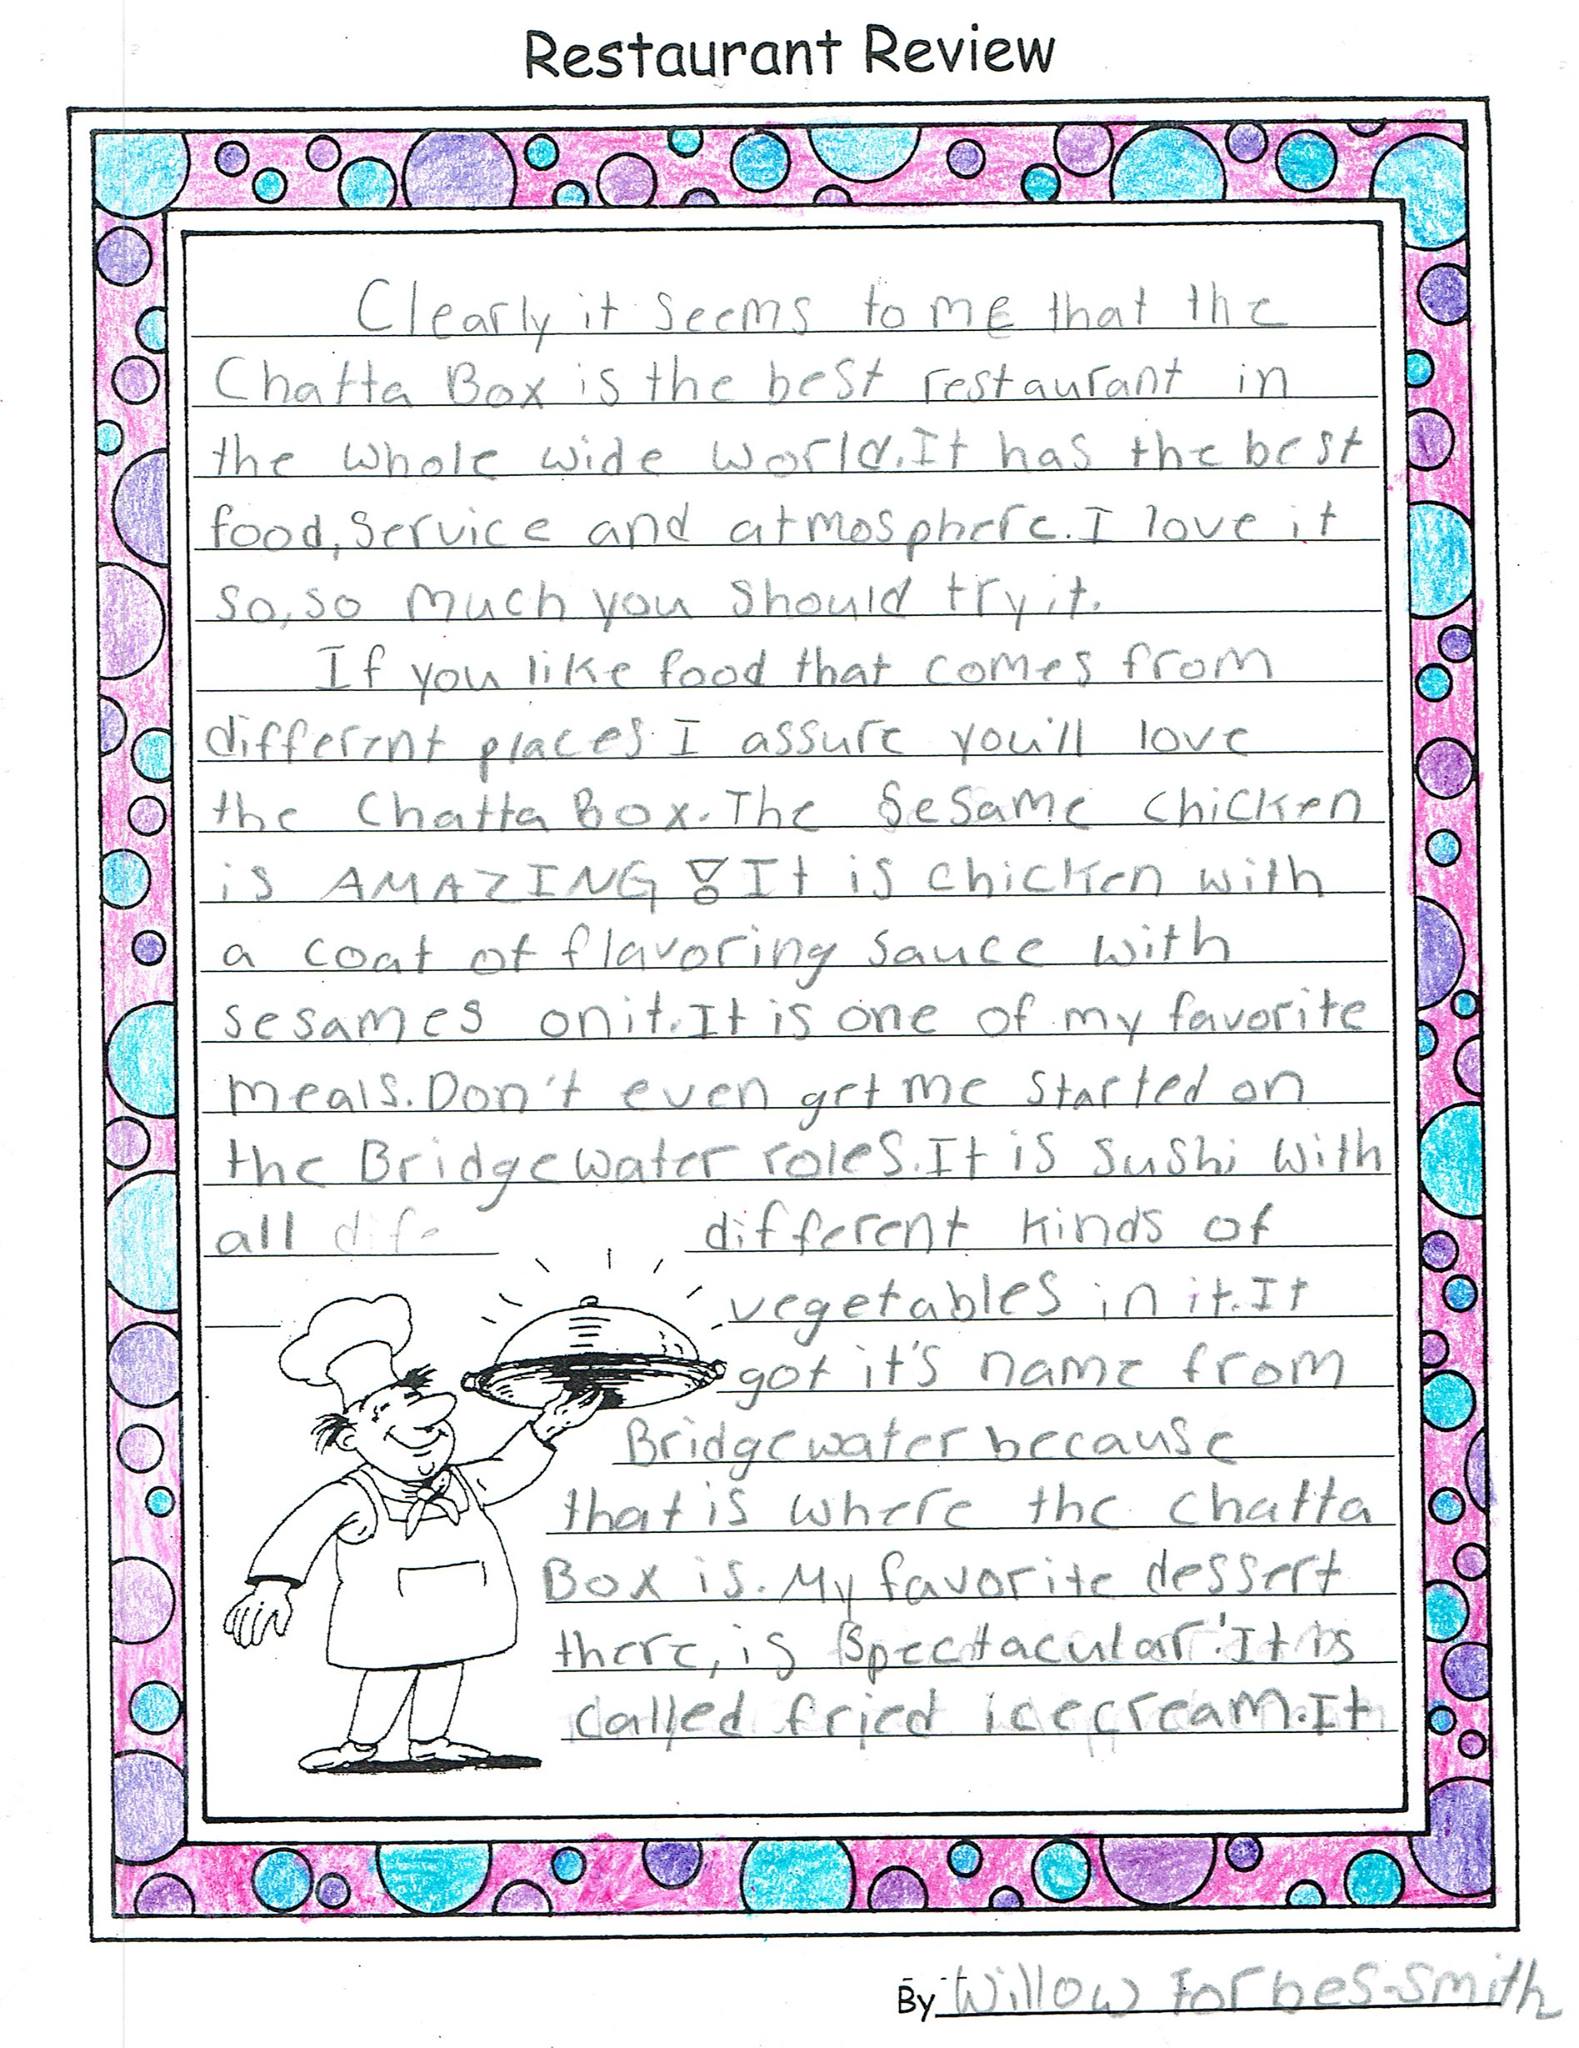 Restaurant Review
Clearly it seems to me that the
Chatta Box is the best restaurant in
the whole wide world. It has the best
food, service and atmosphere. I love it
so, so much you should try it.
If you like food that comes from
different places I assure you'll love
the Chatta Box. The Sesame chicken
is AMAZING! It is chicken with
a coat of flavoring sauce with
sesames on it. It is one of my favorite
meals. Don't even get me started on
the Bridgewater roles. It is sushi with
all different kinds of
vegetables in it. It
got it's name from
Bridgewater because
that is where the chatta
Box is. My favorite dessert
there, is spectacular! It is
called fried icecream. It
By Willow Forbes-Smith